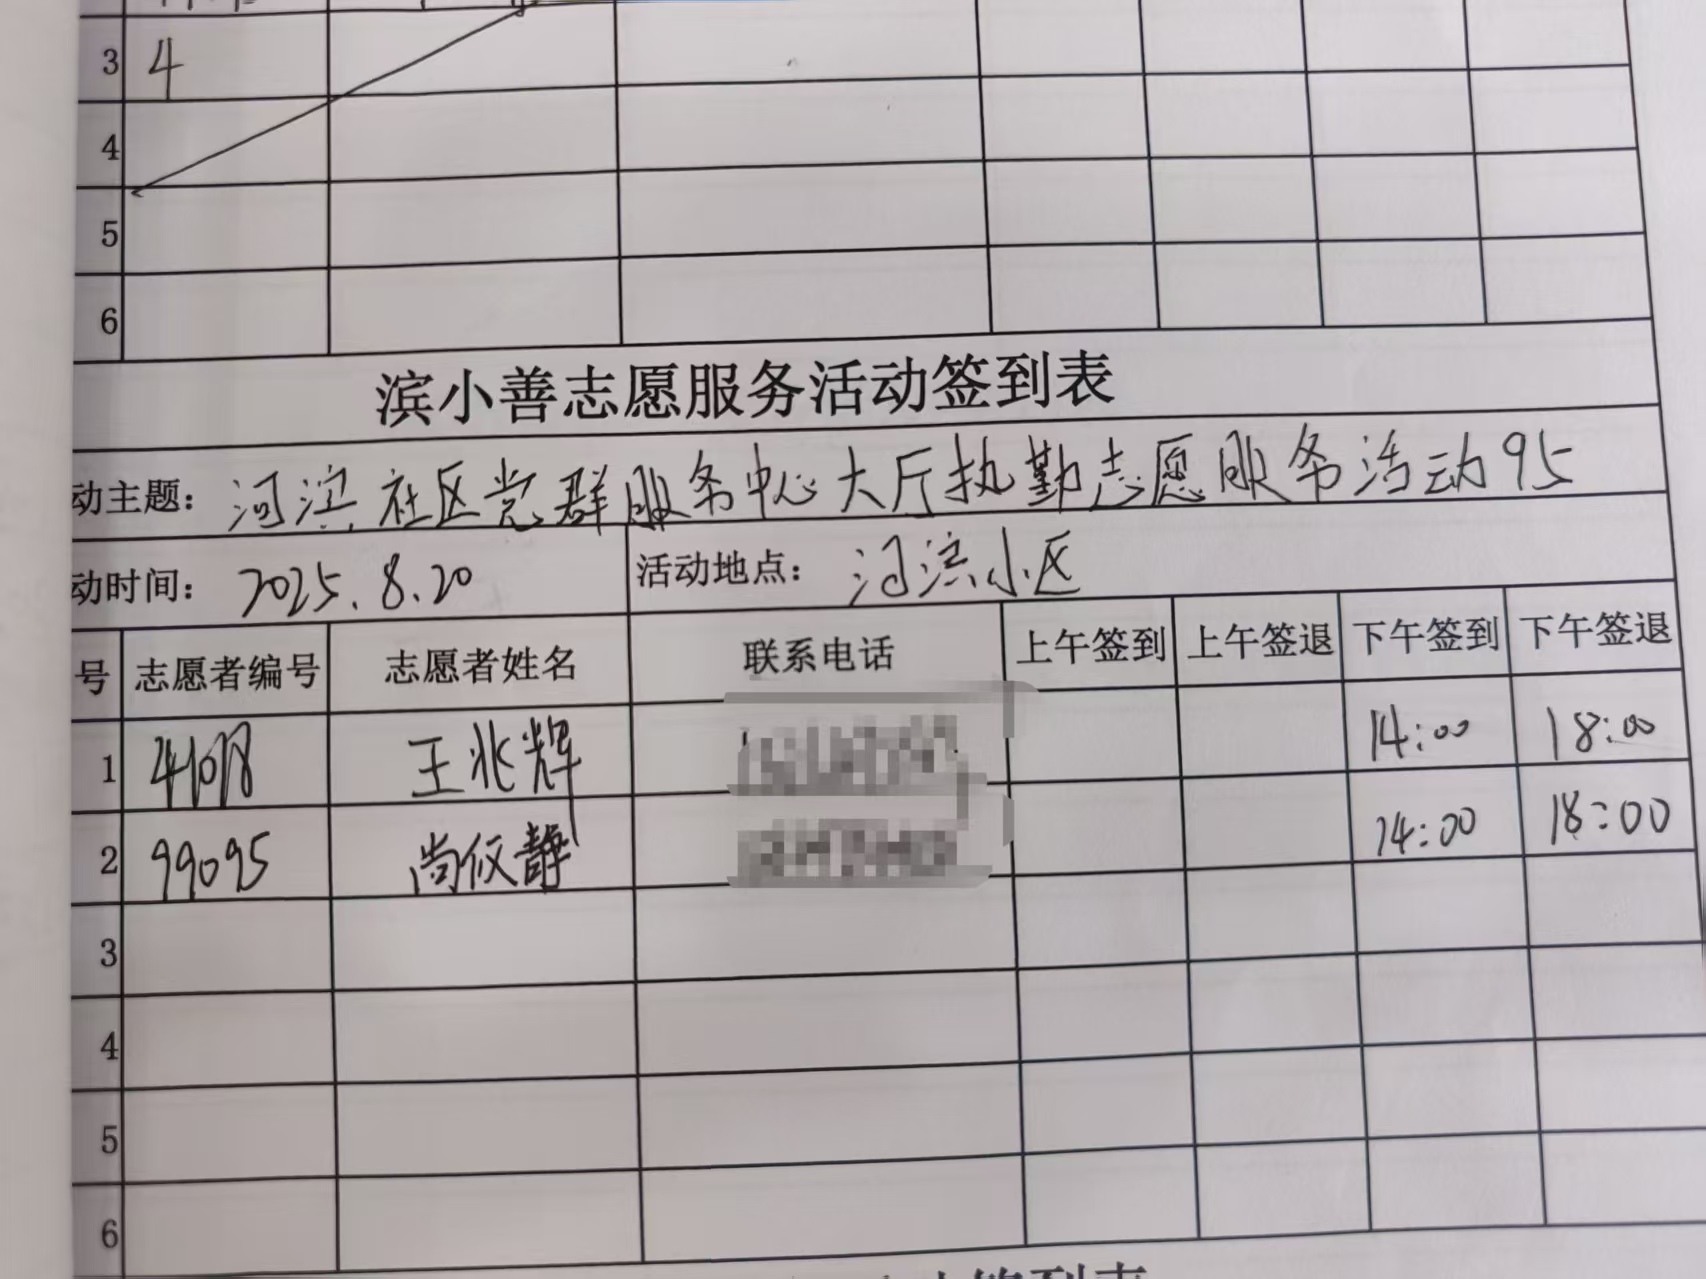 3 4
4
5
6
滨小善志愿服务活动签到表
动主题：河滨社区党群服务中心大厅执勤志愿服务活动95
动时间：2025.8.20 活动地点：河滨小区
号 志愿者编号 志愿者姓名 联系电话 上午签到 上午签退 下午签到 下午签退
1 王兆辉 14:00 18:00
2 99095 尚筱静 14:00 18:00
3
4
5
6
签到表